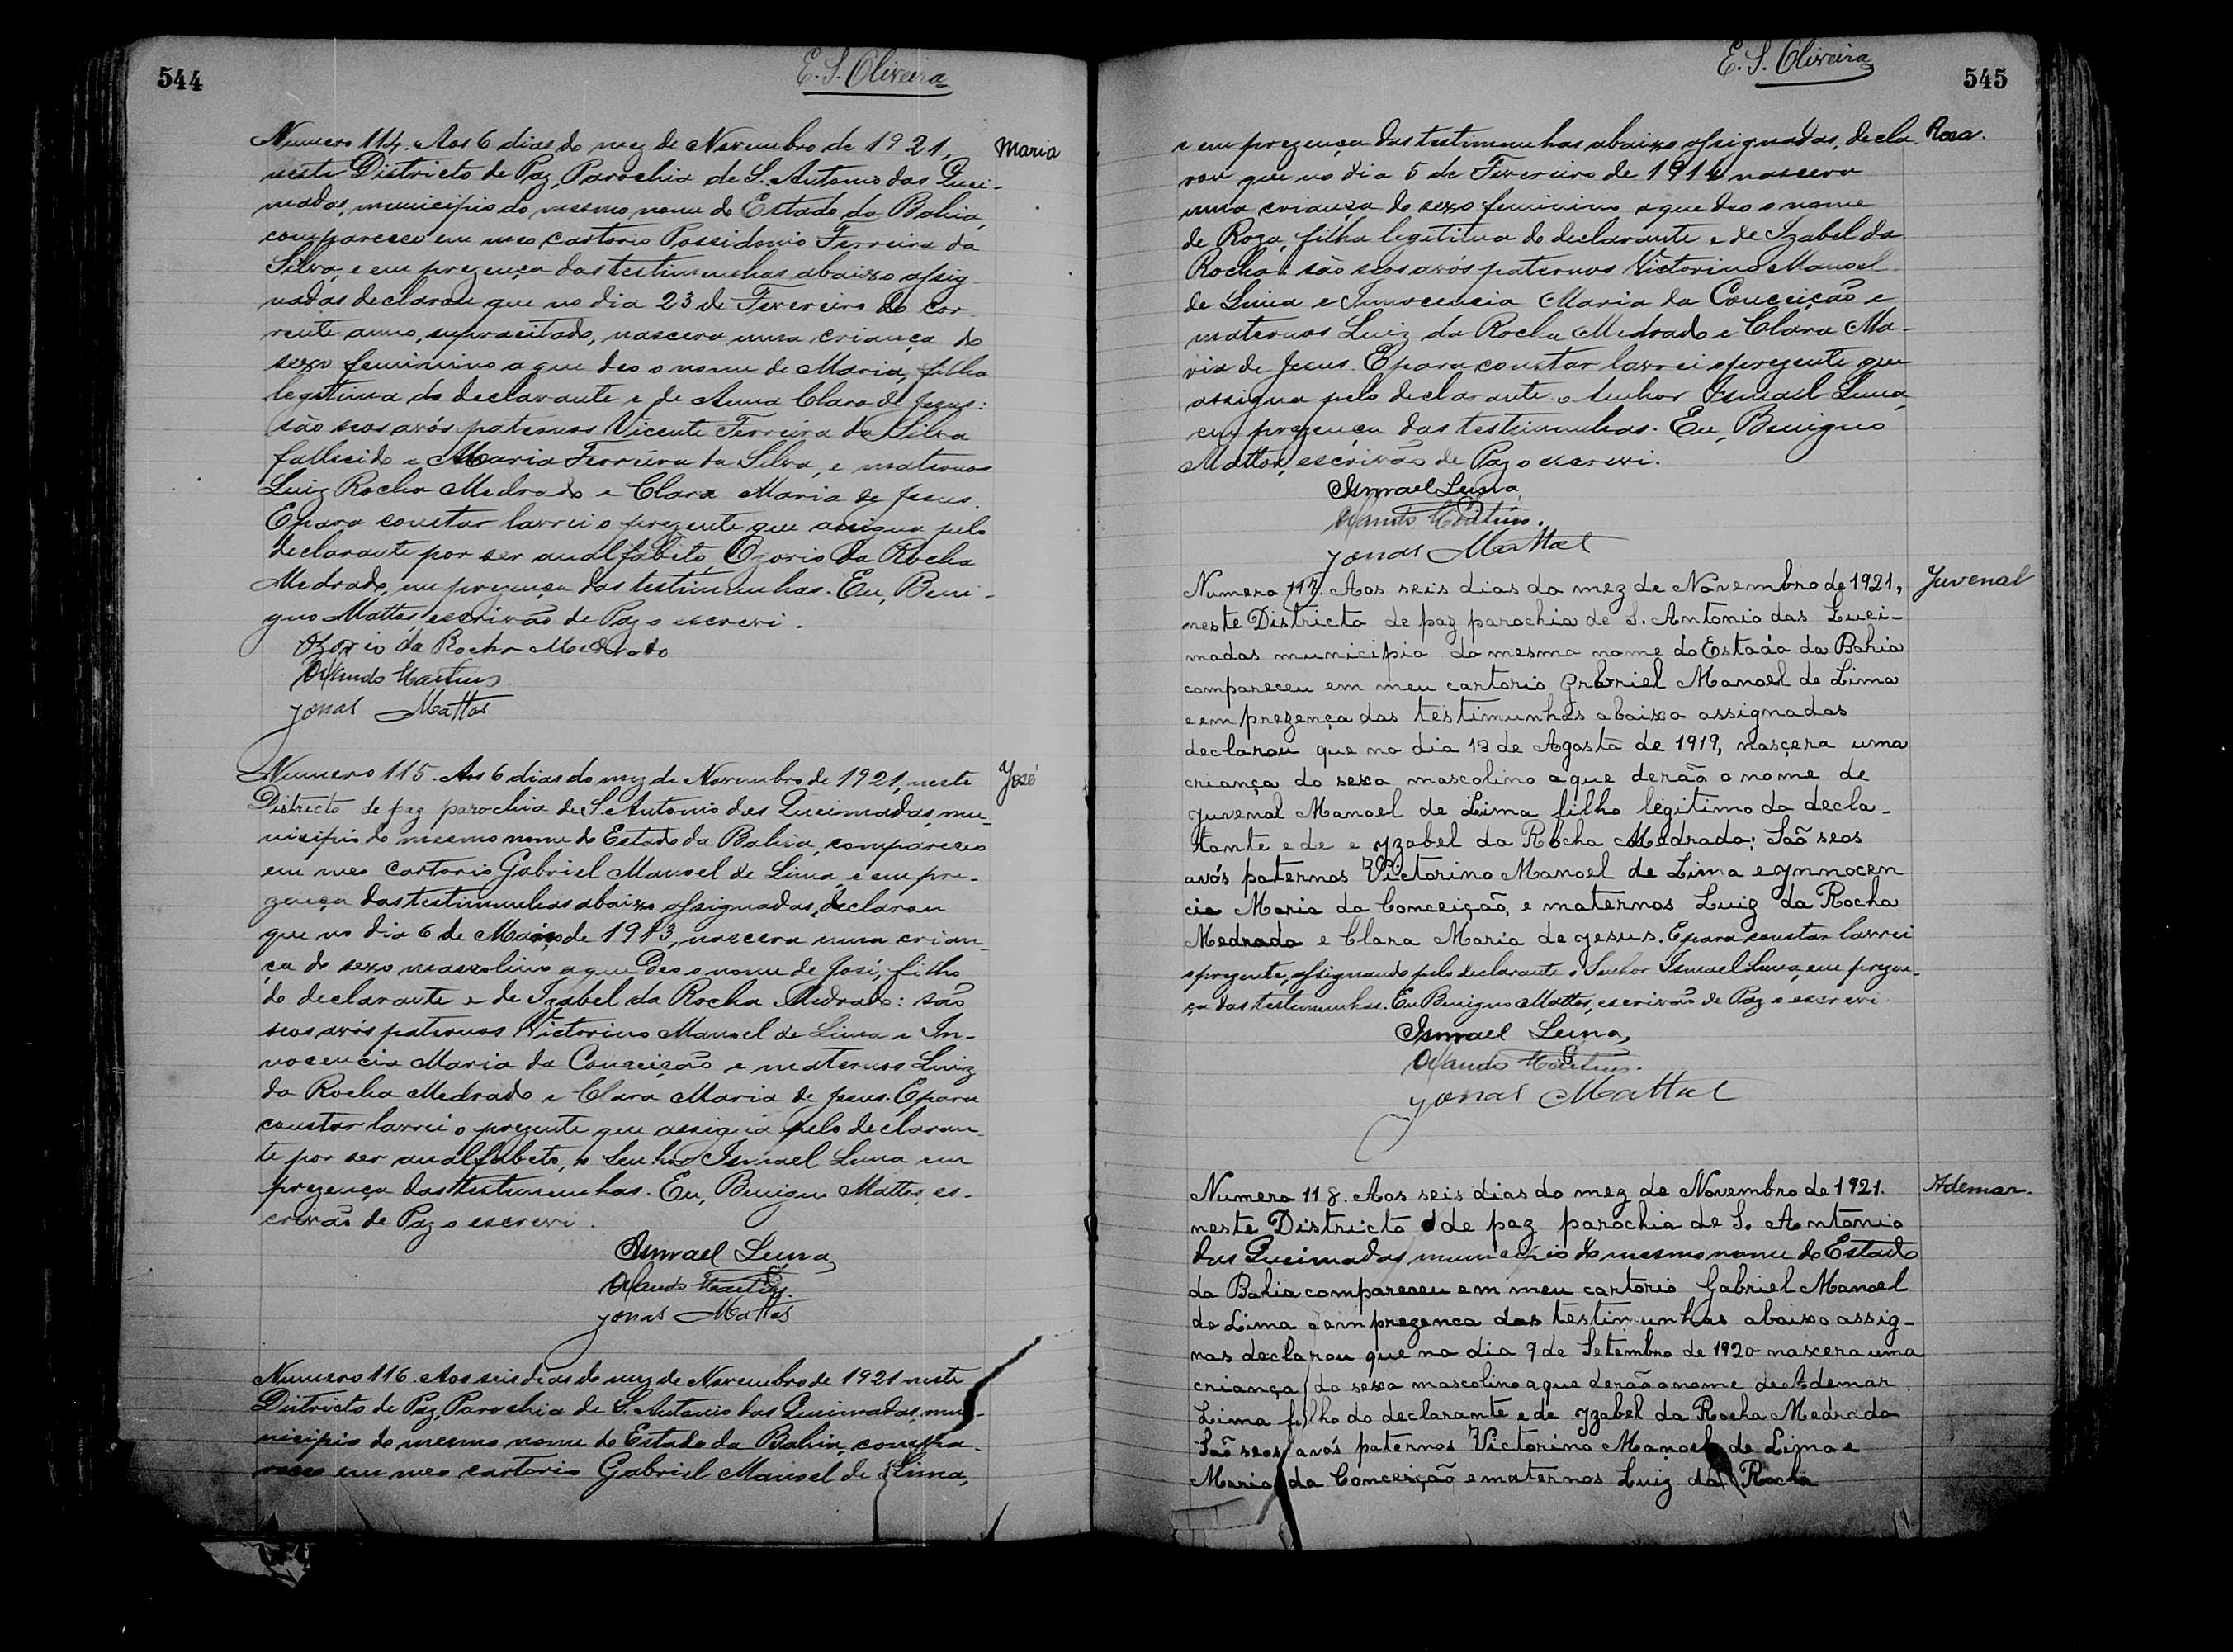 544
E. S. Oliveira
Numero 114. Aos 6 dias do mez de Novembro de 1921,
Maria
neste Districto de Paz, Parochia de S. Antonio das Quei-
madas, municipio do mesmo nome do Estado da Bahia,
compareceo em meo cartorio Possidonio Ferreira da
Silva, e em prezença das testimunhas abaixo assig-
nadas declarou que no dia 23 de Fevereiro do cor-
rente anno, supracitado, nascera uma criança do
sexo feminino a que deo o nome de Maria, filha
legitima do declarante e de Anna Clara de Jesus:
são seos avós paternos Vicente Ferreira da Silva
fallecido e Maria Ferreira da Silva, e maternos
Luiz Rocha Medrado e Clara Maria de Jesus.
E para constar lavrei o prezente que assigna pelo
declarante por ser analfabeto, Ozorio da Rocha
Medrado, em prezença das testimunhas. Eu, Beni-
gno Mattos, escrivão de Paz o escrevi.
Ozorio da Rocha Medrado
Martins
Jonas Mattos
Numero 115. Aos 6 dias do mez de Novembro de 1921, neste
José
Districto de paz parochia de S. Antonio das Queimadas, mu-
nicipio do mesmo nome do Estado da Bahia, compareceo
em meo cartorio Gabriel Manoel de Lima, e em pre-
zença das testimunhas abaixo assignadas, declarou
que no dia 6 de de 1913, nascera uma crian-
ça do sexo mascolino a que deo o nome de José, filho
do declarante e de Izabel da Rocha Medrado: são
seos avós paternos Victorino Manoel de Lima e In-
nocencia Maria da Conceição e maternos Luiz
da Rocha Medrado e Clara Maria de Jesus. E para
constar lavrei o prezente que assigna pelo declaran-
te por ser analfabeto, o Senhor Ismael Luna em
prezença das testimunhas. Eu, Benigno Mattos, es-
crivão de Paz o escrevi.
Ismael Luna
Martins
Jonas Mattos
Numero 116. Aos seis dias do mez de Novembro de 1921 neste
Districto de Paz, Parochia de S. Antonio das Queimadas, mu-
nicipio do mesmo nome do Estado da Bahia, compa-
receo em meo cartorio Gabriel Manoel de Lima,
E. S. Oliveira
545
e em prezença das testimunhas abaixo assignadas, decla-
Rosa.
rou que no dia 5 de Fevereiro de 1914 nascera
uma criança do sexo feminino a que deo o nome
de Roza, filha legitima do declarante e de Izabel da
Rocha: são seos avós paternos Victorino Manoel
de Lima e Innocencia Maria da Conceição e
maternos Luiz da Rocha Medrado e Clara Ma-
ria de Jesus. E para constar lavrei o prezente que
assigna pelo declarante o Senhor Ismael Luna,
em prezença das testimunhas. Eu, Benigno
Mattos, escrivão de Paz o escrevi.
Ismael Luna
Martins.
Jonas Mattos
Numero 117. Aos seis dias do mez de Novembro de 1921,
Juvenal
neste Districto de paz parochia de S. Antonio das Quei-
madas municipio do mesmo nome do Estado da Bahia
compareceu em meu cartorio Grabriel Manoel de Lima
e em prezença das testimunhas abaixo assignadas
declarou que no dia 13 de Agosto de 1919, nasçera uma
criança do sexo mascolino a que derão o nome de
Juvenal Manoel de Lima filho legitimo do decla-
rante e de e Yzabel da Rocha Medrado: São seos
avós paternos Victorino Manoel de Lima e Ynnocen
cia Maria da Conceição, e maternos Luiz da Rocha
Medrado e Clara Maria de Jesus. E para constar lavrei
o prezente, assignando pelo declarante o Senhor Ismael Luna, em prezen-
ça das testimunhas. Eu Benigno Mattos, escrivão de Paz o escrevi
Ismael Luna
Martins.
Jonas Mattos
Numero 118. Aos seis dias do mez de Novembro de 1921.
Ademar.
neste Districto de paz parochia de S. Antonio
das Queimadas municipio do mesmo nome do Estado
da Bahia compareceu em meu cartorio Gabriel Manoel
de Lima e em prezenca das testimunhas abaixo assig-
nas declarou que no dia 9 de Setembro de 1920 nascera uma
criança do sexo mascolino a que derão o nome de Ademar
Lima filho do declarante e de Yzabel da Rocha Medrado
São seos avós paternos Victorino Manoel de Lima e
Maria da Conceição e maternos Luiz da Rocha